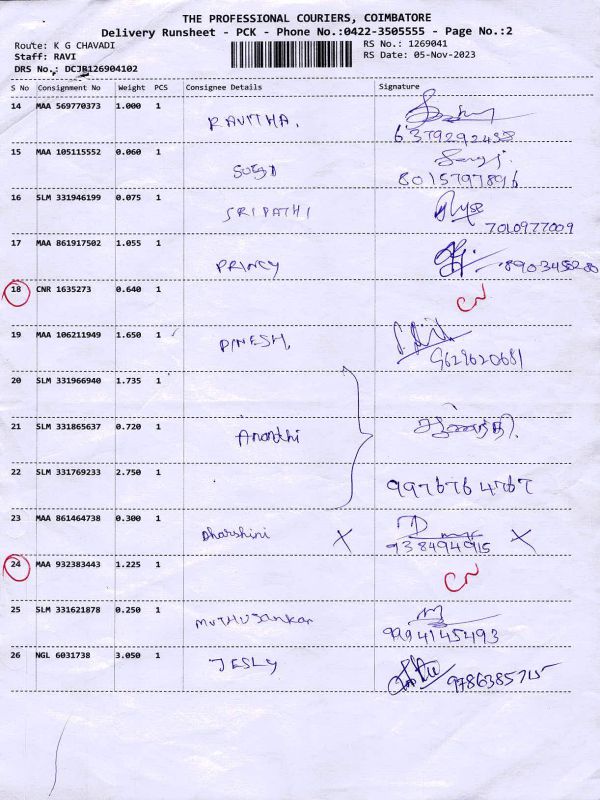 THE PROFESSIONAL COURIERS, COIMBATORE
Delivery Runsheet - PCK - Phone No.:0422-3505555 - Page No.:2
Route: K G CHAVADI RS No.: 1269041
Staff: RAVI RS Date: 05-Nov-2023
DRS No.: DCJB126904102
S No Consignment No Weight PCS Consignee Details Signature
14 MAA 569770373 1.000 1 KAVITHA.
6379292458
15 MAA 105115552 0.060 1
8015797896
16 SLM 331946199 0.075 1 SRIPATHI
7010977009
17 MAA 861917502 1.055 1 PRINCY
18 CNR 1635273 0.640 1 CN
19 MAA 106211949 1.650 1 DINESH,
9629620681
20 SLM 331966940 1.735 1
21 SLM 331865637 0.720 1 Ananthi
22 SLM 331769233 2.750 1 9976764767
23 MAA 861464738 0.300 1 Dharshini X X
938494915
24 MAA 932383443 1.225 1 CN
25 SLM 331621878 0.250 1 Muthusankar
9994145493
26 NGL 6031738 3.050 1 JESLY 9786385715